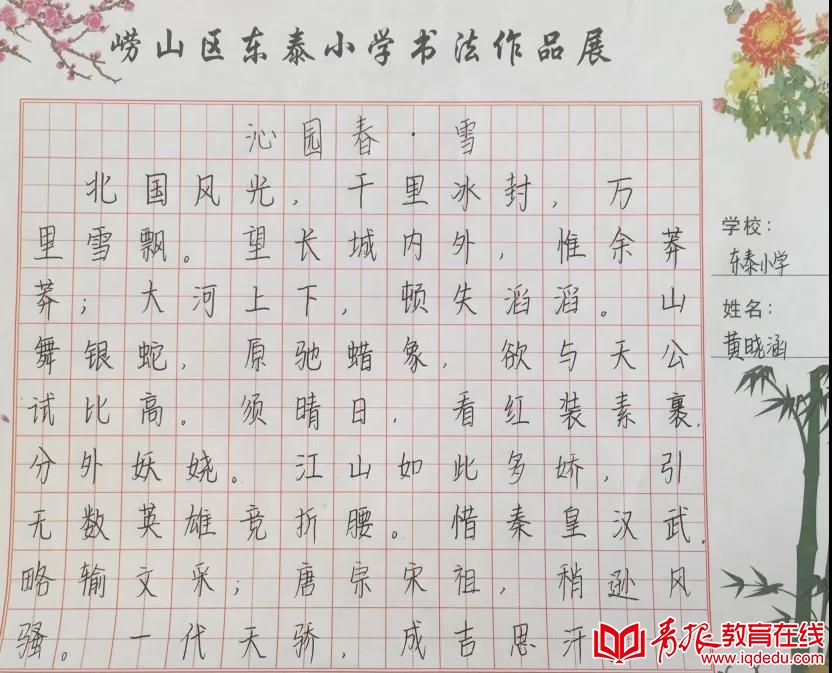 崂山区东泰小学书法作品展
沁园春·雪
北国风光，千里冰封，万
里雪飘。望长城内外，惟余莽
莽；大河上下，顿失滔滔。山
舞银蛇，原驰蜡象，欲与天公
试比高。须晴日，看红装素裹，
分外妖娆。江山如此多娇，引
无数英雄竞折腰。惜秦皇汉武，
略输文采；唐宗宋祖，稍逊风
骚。一代天骄，成吉思汗
学校：
东泰小学
姓名：
黄晓涵
青报教育在线
www.iqdedu.com